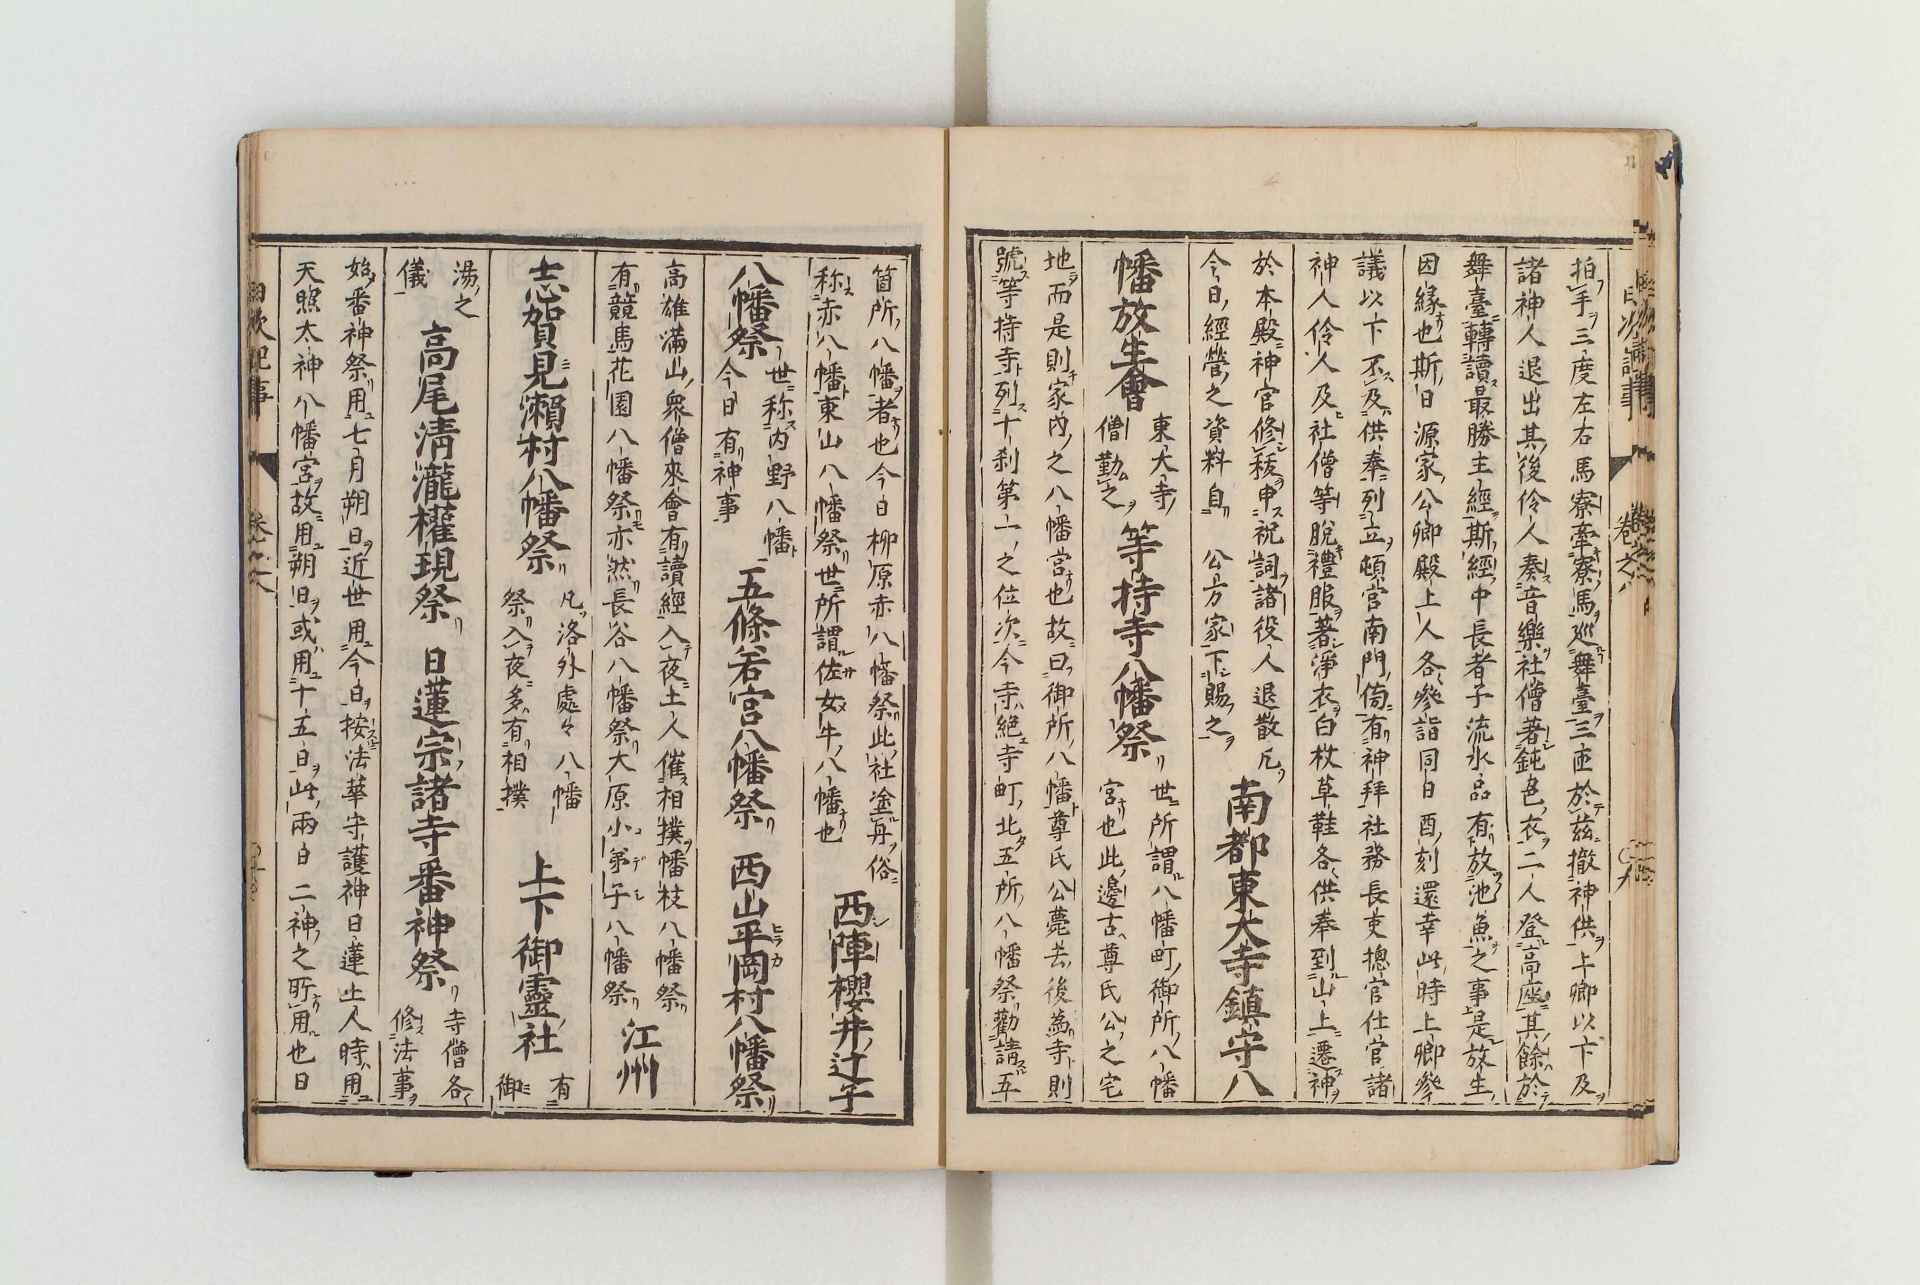 拍手三度左右馬寮牽寮馬巡舞臺三匝於茲撤神供上卿以下及
諸神人退出其後伶人奏音樂社僧著鈍色衣二人登高座其餘於
舞臺轉讀最勝王經斯經中長者子流水品有放池魚之事是放生
因緣也斯日源家公卿殿上人各參詣同日酉刻還幸此時上卿參
議以下丕及供奉列立頓宮南門倚有神拜社務長吏摠官仕官諸
神人伶人及社僧等脫禮服著淨衣白杖草鞋各供奉到山上遷神
於本殿神官修祓申祝詞諸役人退散凡
今日經營之資料自 公方家下賜之
南都東大寺鎮守八
幡放生會
東大寺
僧勤之
等持寺八幡祭
世所謂八幡町御所八幡
宮也此邊古尊氏公之宅
地而是則家內之八幡宮也故曰御所八幡尊氏公薨去後為寺則
號等持寺列十刹第一之位次今寺絕寺町北五所八幡祭勸請五
箇所八幡者也今日柳原赤八幡祭此社塗丹俗
称赤八幡東山八幡祭世所謂佐女牛八幡也
西陣櫻井辻子
八幡祭
世称内野八幡
今日有神事
五條若宮八幡祭
西山平岡村八幡祭
高雄滿山衆僧來會有讀經入夜土人催相撲幡枝八幡祭
有競馬花園八幡祭亦然長谷八幡祭大原小弟子八幡祭
江州
志賀見瀨村八幡祭
凡洛外處々八幡
祭入夜多有相撲
上下御靈社
有
御
湯之
儀
高尾清瀧權現祭
日蓮宗諸寺番神祭
寺僧各
修法事
始番神祭用七月朔日近世用今日按法華守護神日蓮上人時用
天照太神八幡宮故用朔日或用十五日此兩日二神之所用也日
日次紀事